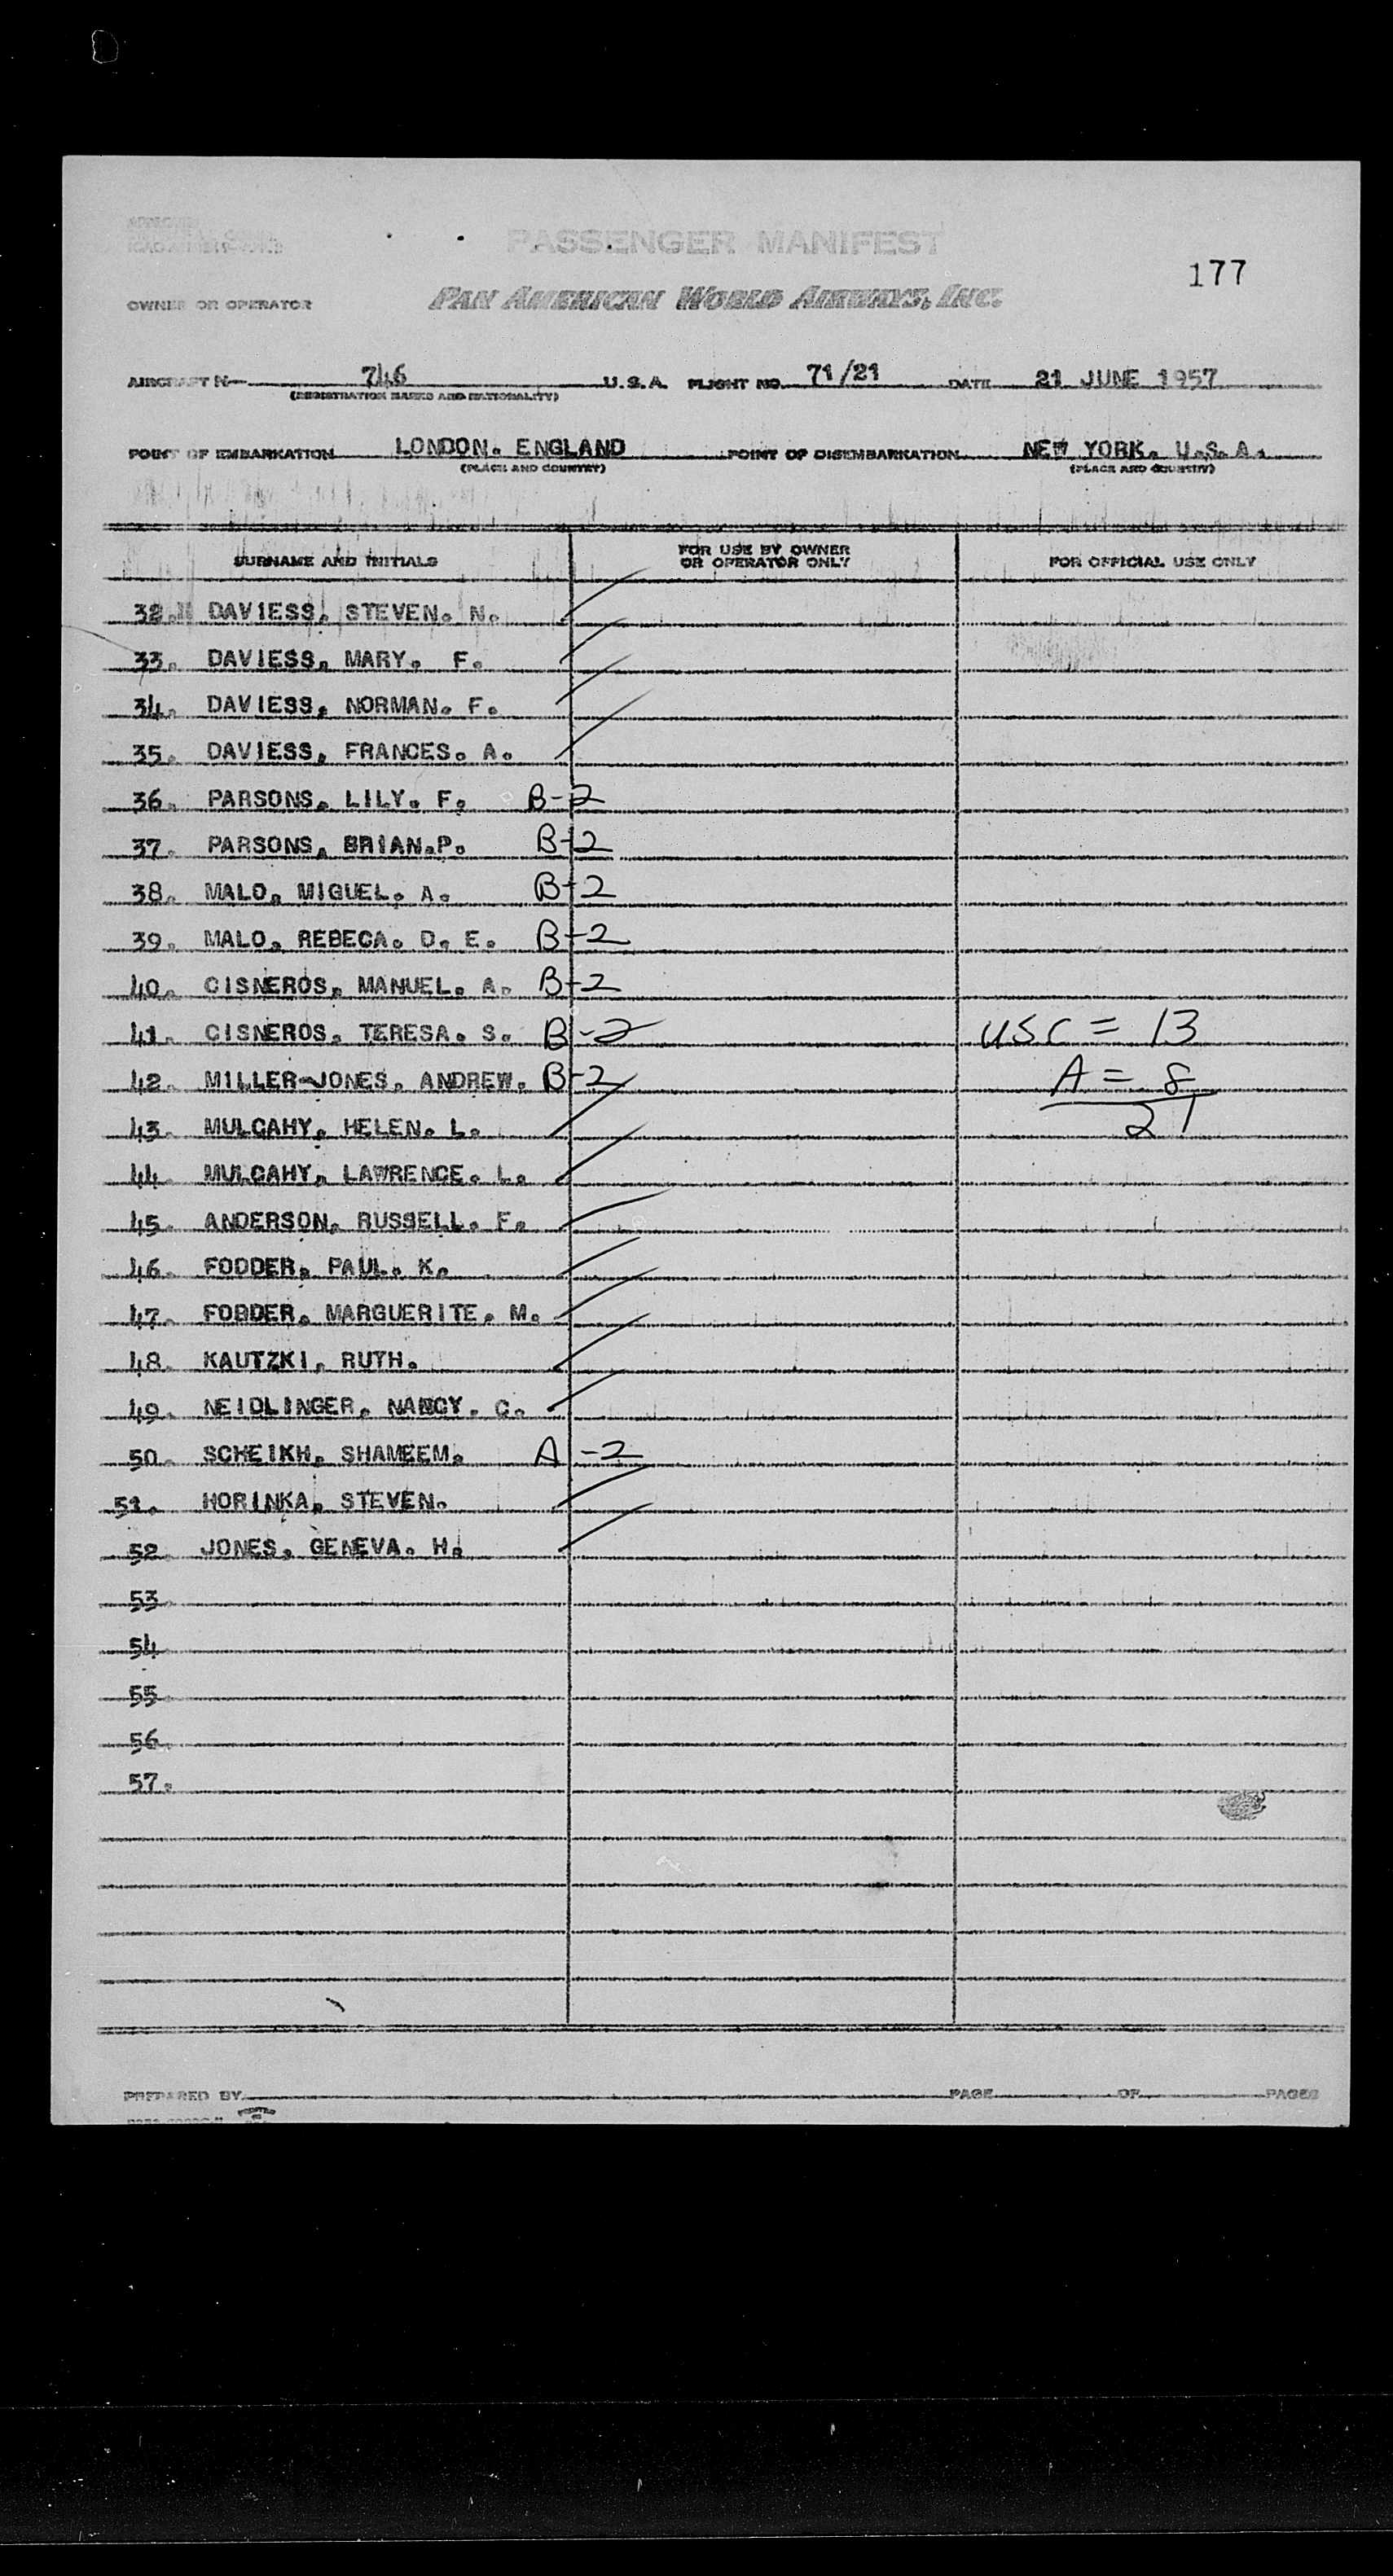 PASSENGER MANIFEST
177
OWNER OR OPERATOR PAN AMERICAN WORLD AIRWAYS, INC.
AIRCRAFT N- 746 U.S.A. FLIGHT NO. 71/21 DATE 21 JUNE 1957
(REGISTRATION MARKS AND NATIONALITY)
POINT OF EMBARKATION LONDON. ENGLAND POINT OF DISEMBARKATION NEW YORK. U.S.A.
(PLACE AND COUNTRY) (PLACE AND COUNTRY)
SURNAME AND INITIALS FOR USE BY OWNER OR OPERATOR ONLY FOR OFFICIAL USE ONLY
32. DAVIESS, STEVEN. N.
33. DAVIESS, MARY. F.
34. DAVIESS, NORMAN. F.
35. DAVIESS, FRANCES. A.
36. PARSONS, LILY. F. B-2
37. PARSONS, BRIAN.P. B-2
38. MALO, MIGUEL. A. B-2
39. MALO, REBECA. D. E. B-2
40. CISNEROS, MANUEL. A. B-2
41. CISNEROS, TERESA. S. B-2 USC = 13
42. MILLER-JONES, ANDREW. B-2 A = 8
43. MULCAHY, HELEN. L. 21
44. MULCAHY, LAWRENCE. L.
45. ANDERSON, RUSSELL. F.
46. FODDER, PAUL. K.
47. FODDER, MARGUERITE. M.
48. KAUTZKI, RUTH.
49. NEIDLINGER, NANCY. C.
50. SCHEIKH, SHAMEEM. A-2
51. HORINKA, STEVEN.
52. JONES, GENEVA. H.
53.
54.
55.
56.
57.
PREPARED BY PAGE OF PAGES